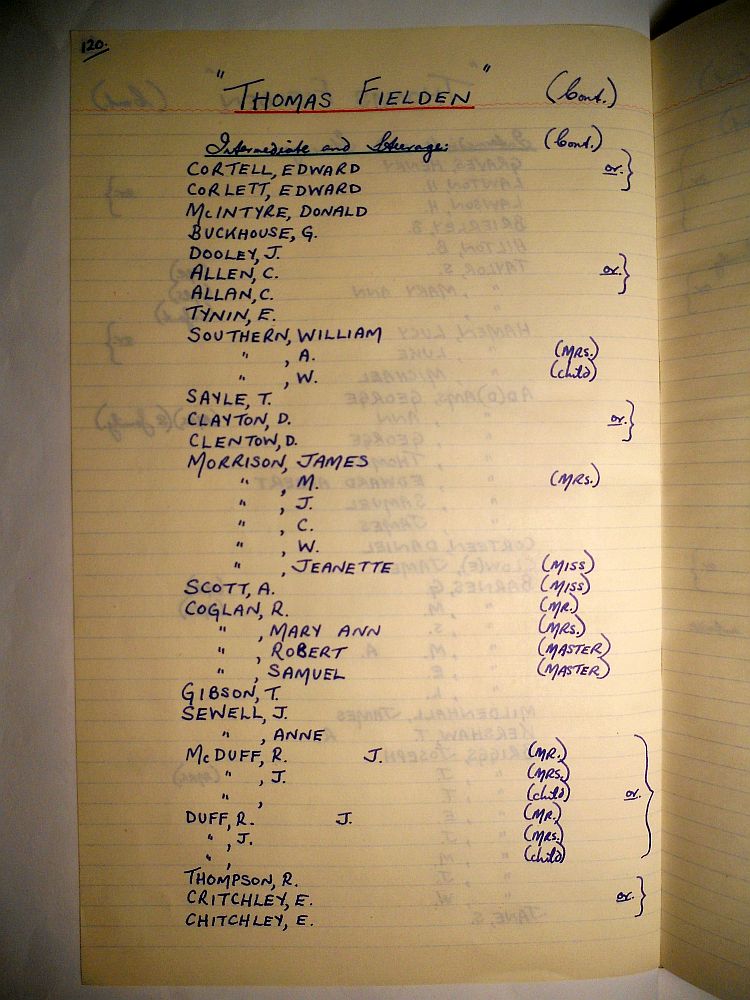 120.
"THOMAS FIELDEN" (Cont.)
Intermediate and Steerage: (Cont.)
CORTELL, EDWARD or. }
CORLETT, EDWARD
McINTYRE, DONALD
BUCKHOUSE, G.
DOOLEY, J.
ALLEN, C. or. }
ALLAN, C.
TYNIN, E.
SOUTHERN, WILLIAM
" , A. (MRS.)
" , W. (child)
SAYLE, T.
CLAYTON, D. or. }
CLENTOW, D.
MORRISON, JAMES
" , M. (MRS.)
" , J.
" , C.
" , W.
" , JEANETTE (MISS)
SCOTT, A. (MISS)
COGLAN, R. (MR.)
" , MARY ANN (MRS.)
" , ROBERT (MASTER)
" , SAMUEL (MASTER)
GIBSON, T.
SEWELL, J.
" , ANNE
McDUFF, R. J. (MR.)
" , J. (MRS.)
" , (child) or. }
DUFF, R. J. (MR.)
" , J. (MRS.)
" , (child)
THOMPSON, R.
CRITCHLEY, E. or. }
CHITCHLEY, E.